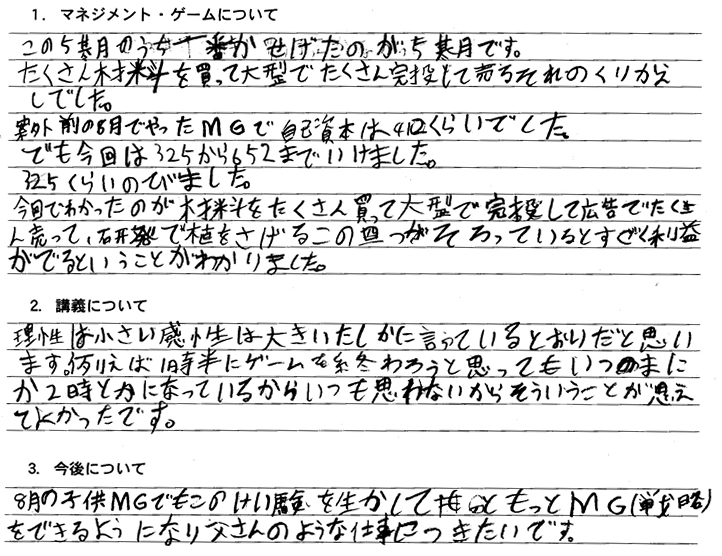 1. マネジメント・ゲームについて
この5期のうち一番かせげたのが5期です。
たくさん材料を買って大型でたくさん完投して売るそれのくりかえ
しでした。
案外前の8月でやったMGで自己資本は412くらいでした。
でも今回は325から652まで いけました。
325くらいのびました。
今回でわかったのが材料をたくさん買って大型で完投して広告でたくさ
ん売って、研発で値をさげるこの四つがそろっているとすごく利益
がでるということがわかりました。
2. 講義について
理性は小さい感性は大きいたしかに言っているとおりだと思い
ます。例えば1時半にゲームを終わろうと思ってもいつのまに
か2時とかになっているからいつも思わないからそういうことが思え
てよかったです。
3. 今後について
8月の子供MGでもこのけい験を生かして もっとMG(戦略)
をできるようになり父さんのような仕事につきたいです。